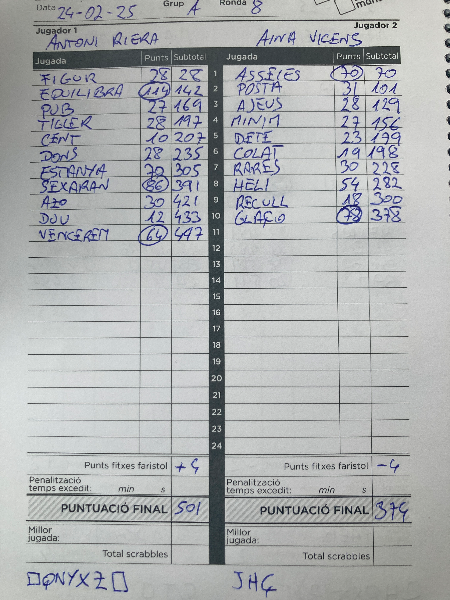 Data 24-02-25 Grup A Ronda 8
Jugador 1 Jugador 2
ANTONI RIERA AINA VICENS
Jugada Punts Subtotal Jugada Punts Subtotal
FIGUR 28 28 1 ASSELES 70 70
EQUILIBRA 114 142 2 POSTA 31 101
PUB 27 169 3 AJEUS 28 129
TIGLER 28 197 4 MINIM 27 156
CENT 10 207 5 DETE 23 179
DONS 28 235 6 COLAT 19 198
ESTANYA 70 305 7 RARES 30 228
SEXARAN 86 391 8 HELI 54 282
AZO 30 421 9 RECULL 18 300
DUU 12 433 10 GLAÇIO 78 378
VENCEREM 64 497 11
12
13
14
15
16
17
18
19
20
21
22
23
24
Punts fitxes faristol +4 Punts fitxes faristol -4
Penalització temps excedit: min s Penalització temps excedit: min s
PUNTUACIÓ FINAL 501 PUNTUACIÓ FINAL 374
Millor jugada: Millor jugada:
Total scrabbles Total scrabbles
□QNYXZ□ JHÇ